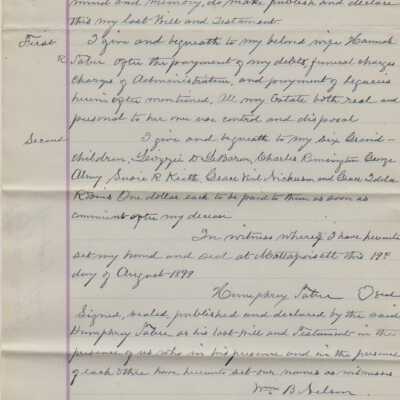 mind and memory, do make publish and declare
this my last Will and Testament
First I give and bequeath to my beloved wife Hannah
R. after the payment of my debts, funeral charges
Charges of Administration, and payment of legacies
herein after mentioned, All my Estate both real and
personal to her own use control and disposal
Second I give and bequeath to my six Grand-
children, LeBaron, Charles Remington George
Almy Susie R. Keith, Grace Nickerson and Grace
One dollar each to be paid to them as soon as
convenient after my decease
In witness whereof I have hereunto
set my hand and seal at Mattapoisett this 19th
day of August 1899
Humphrey Seal
Signed, sealed published and declared by the said
Humphrey as his last Will and Testament in the
presence of us who in his presence and in the presence
of each other have hereunto set our names as witnesses
Wm B. Nelson